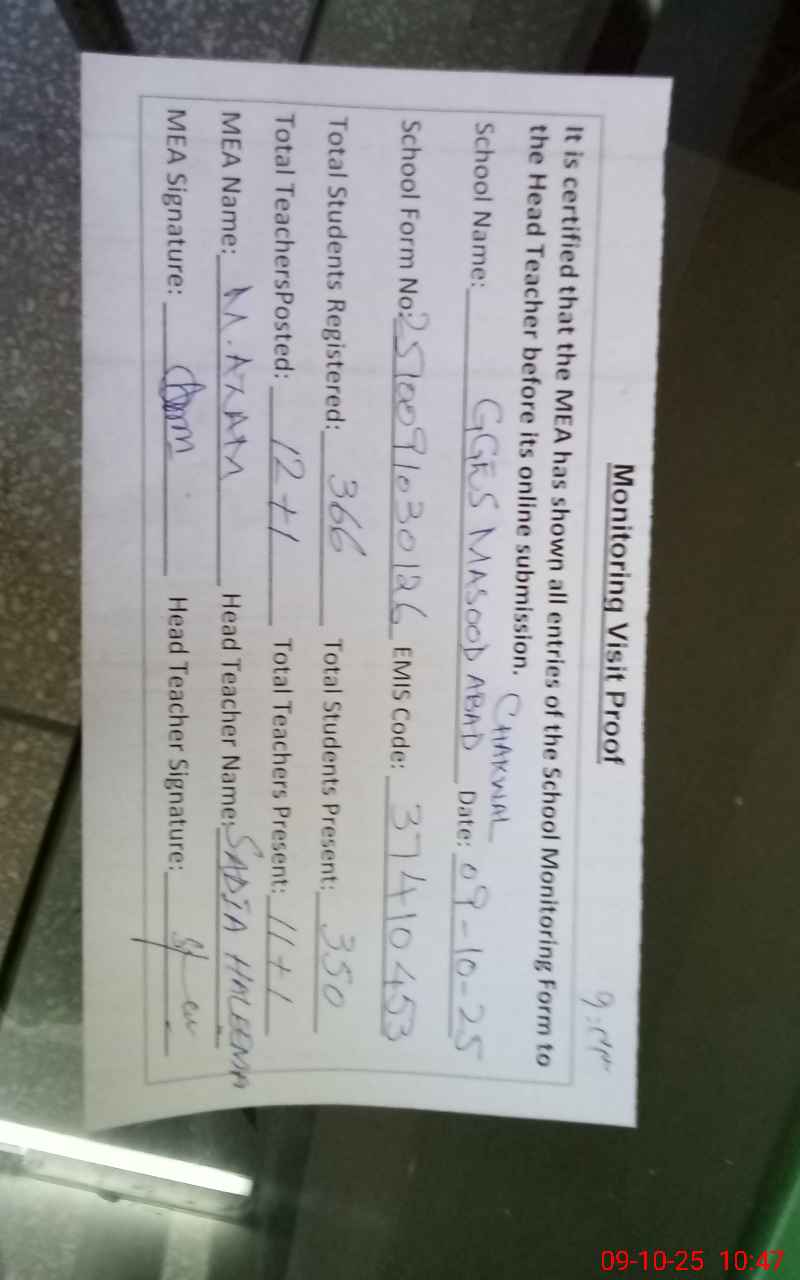 Monitoring Visit Proof
It is certified that the MEA has shown all entries of the School Monitoring Form to
the Head Teacher before its online submission. CHAKWAL
School Name: GGES MASOOD ABAD Date: 09-10-25
School Form No: 2510091030126 EMIS Code: 37410453
Total Students Registered: 366 Total Students Present: 350
Total TeachersPosted: 12+1 Total Teachers Present: 11+1
MEA Name: M.AZAM Head Teacher Name: SADIA HALEEMA
MEA Signature: Head Teacher Signature:
09-10-25 10:47